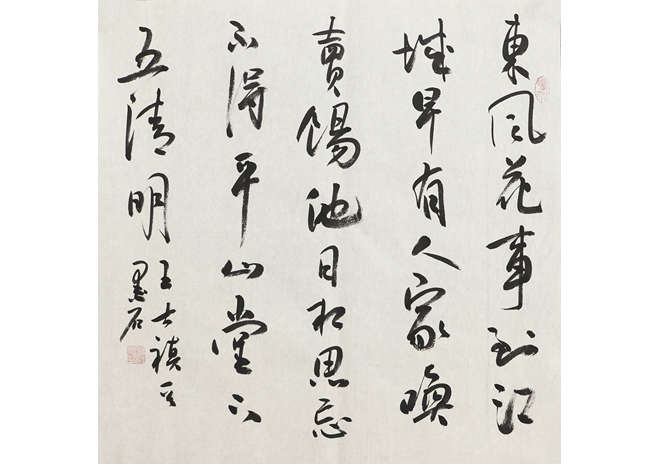 東风花事到江
城早有人家喚
賣餳池日相思忘
不得平山堂下
五清明
王士禛
墨石